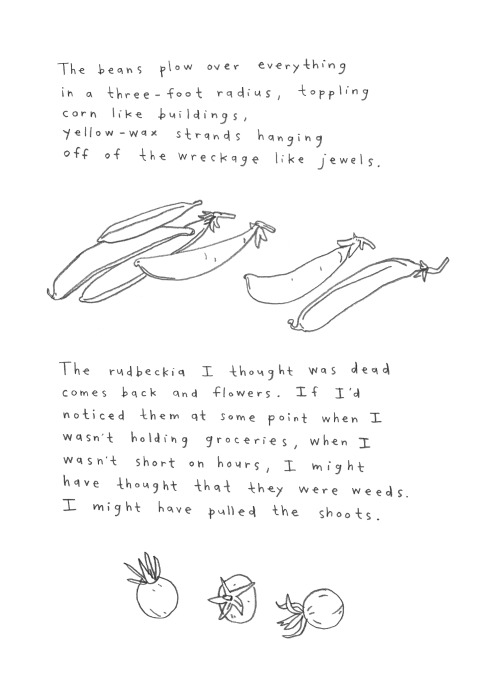 The beans plow over everything
in a three-foot radius, toppling
corn like buildings,
yellow-wax strands hanging
off of the wreckage like jewels.
The rudbeckia I thought was dead
comes back and flowers. If I'd
noticed them at some point when I
wasn't holding groceries, when I
wasn't short on hours, I might
have thought that they were weeds.
I might have pulled the shoots.